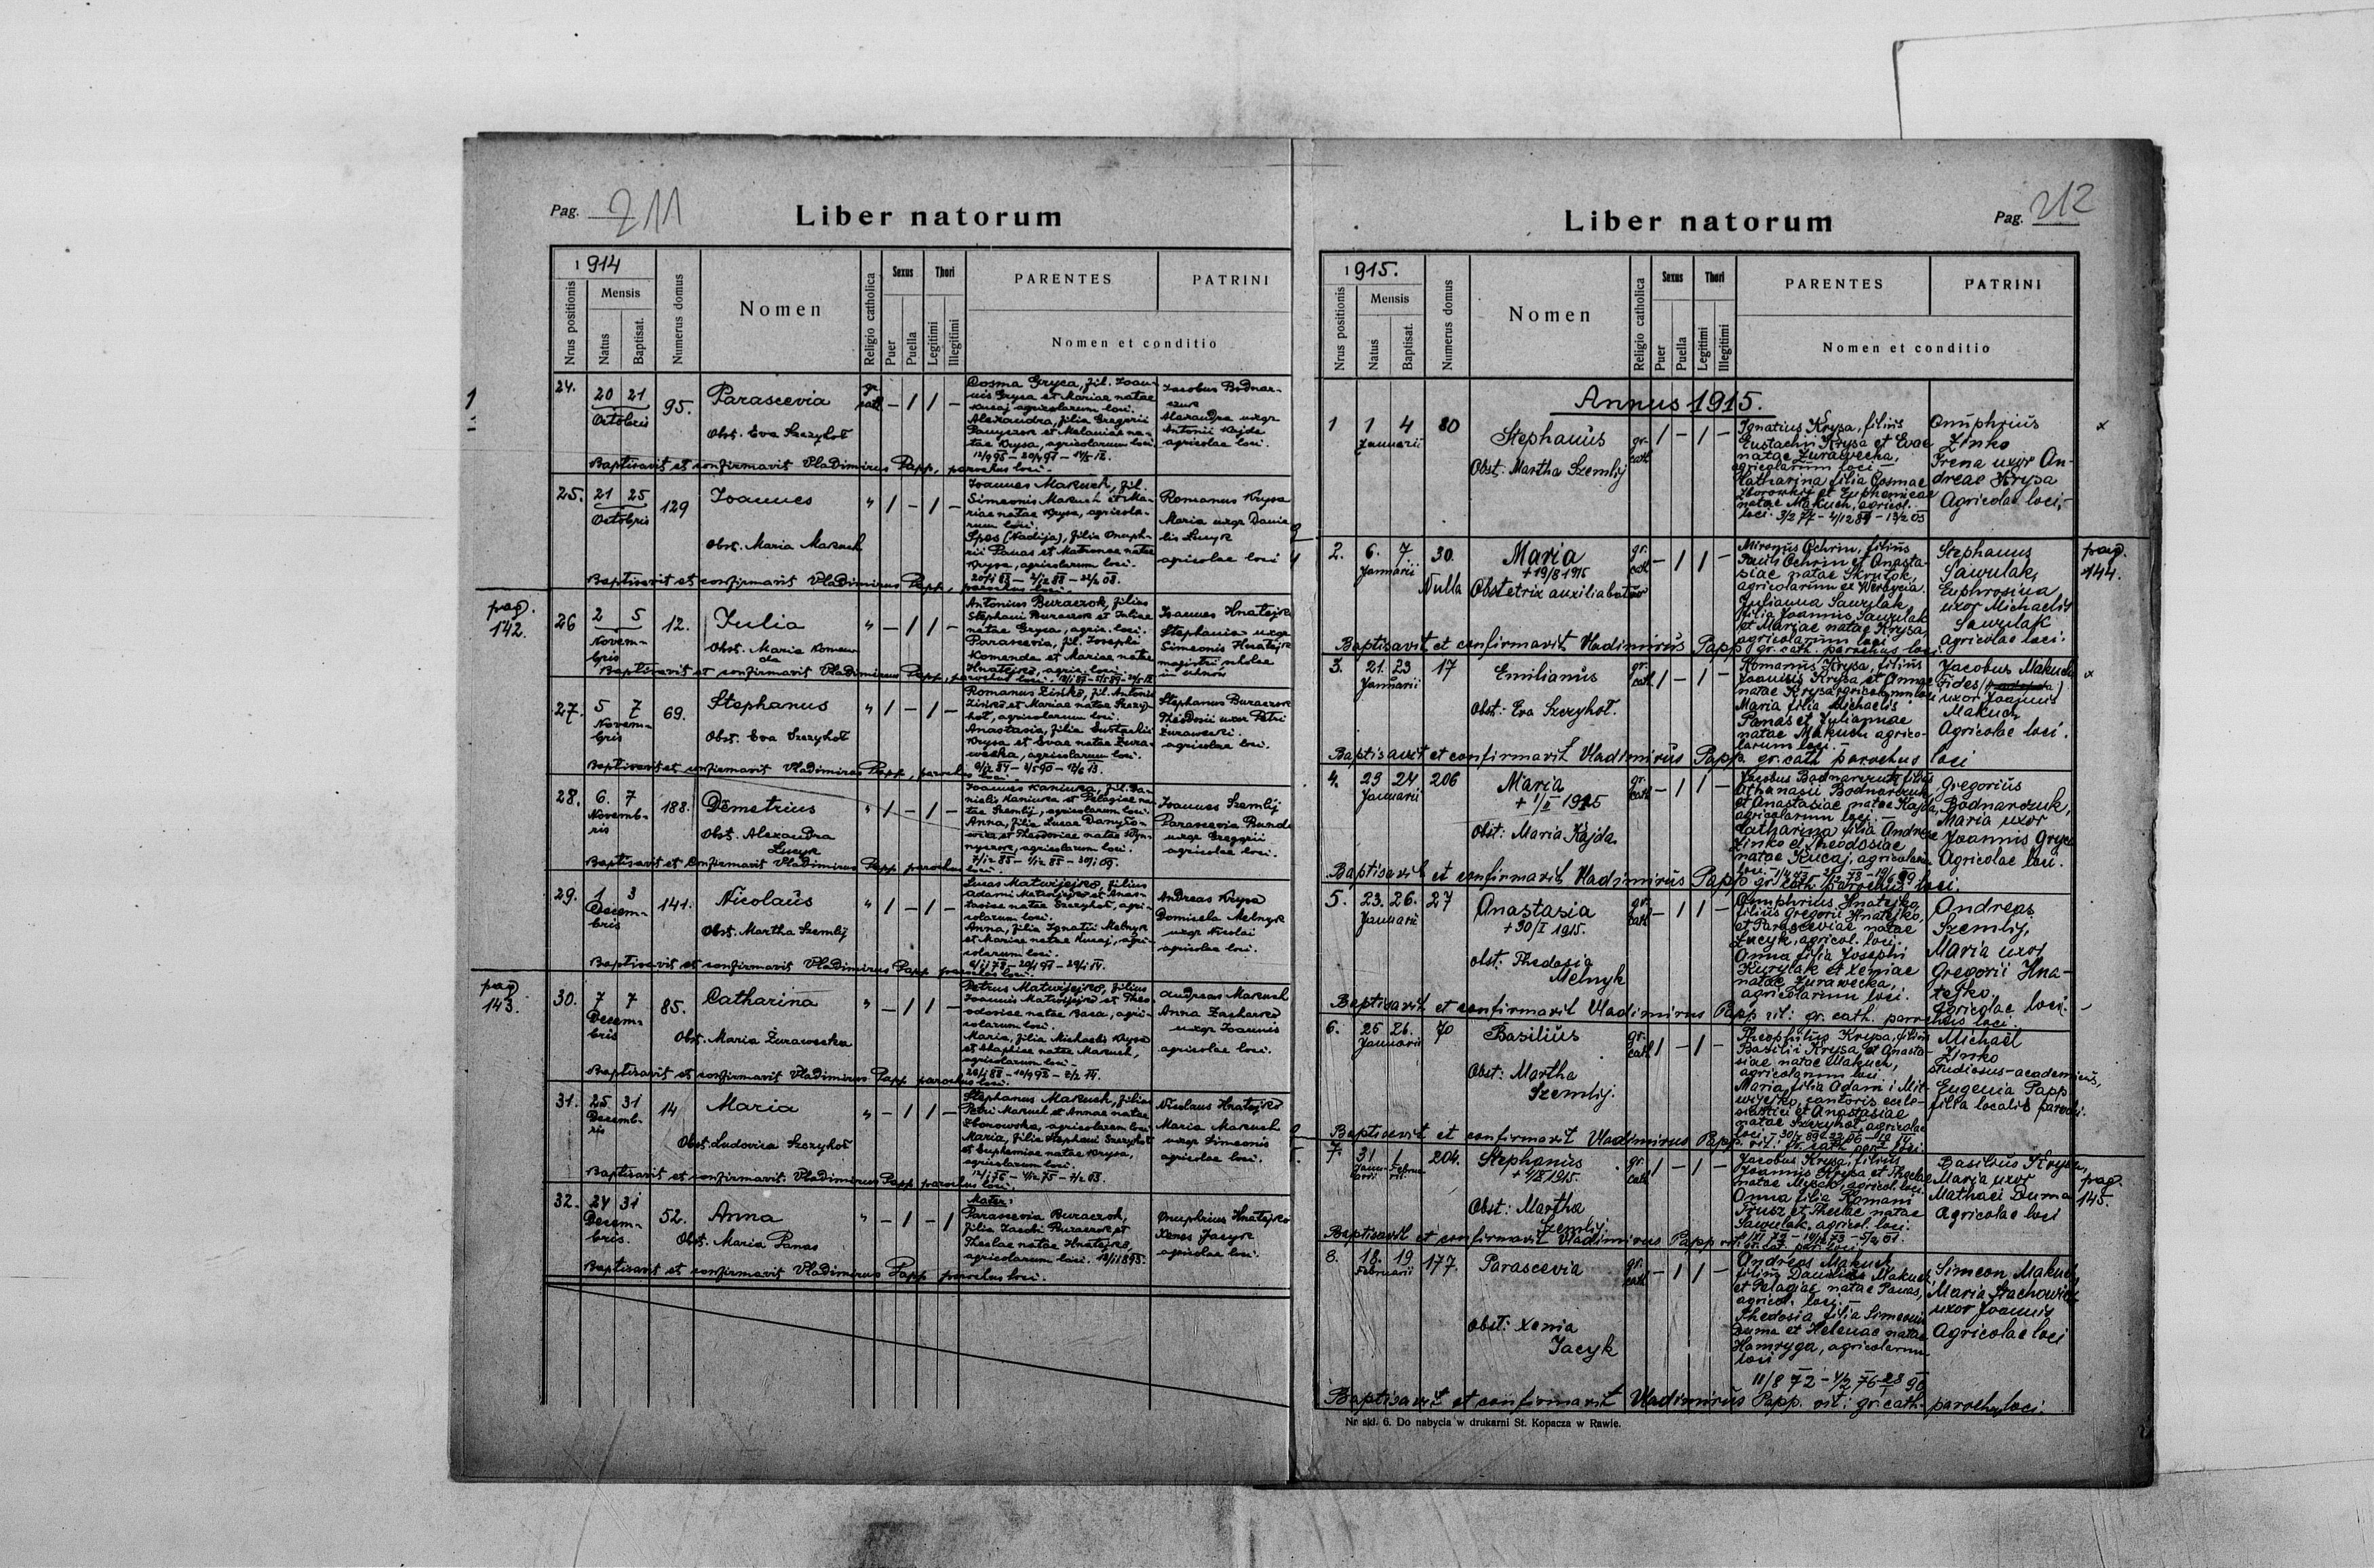 Pag. 211
Liber natorum
1914
Nrus positionis
Mensis
Natus
Baptisat.
Numerus domus
Nomen
Religio catholica
Sexus
Puer
Puella
Thori
Legitimi
Illegitimi
PARENTES
PATRINI
Nomen et conditio
24.
20 21
Octobris
95.
Parascevia
Obst. Eva Szczyhoł
gr. cath
— / / —
Cosma Gryca, fil. Joan-
nis Gryca et Mariae natae
Kucaj agricolarum loci.
Alexandra, filia Gregorii
et Melaniae na-
tae Krysa, agricolarum loci
Jacobus Bodnar-
czuk
Alexandra uxor
Antonii Kajda
agricolae loci.
Baptisavit et confirmavit Vladimirus Papp, parochus loci.
25.
21 25
Octobris
129
Joannes
Obst. Maria Makuch
" / — / —
Joannes Makuch, fil.
Simeonis Makuch et Ma-
riae natae Krysa, agricola-
rum loci.
Spes (Nadija), filia Onuph-
rii Panas et Matronae natae
Krysa, agricolarum loci.
Romanus Krysa
Maria uxor Danie
lis Lucyk
agricolae loci
Baptisavit et confirmavit Vladimirus Papp, parochus loci.
pag.
142.
26
2 5
Novem-
bris
12.
Julia
Obst. Maria Komen
da
" — / / —
Antonius Buraczok, filius
Stephani Buraczok et Juliae
natae Gryca, agric. loci.
Parascevia, fil. Josephi
Komenda et Mariae natae
Hnatejko, agric. loci.
Joannes Hnatejko
Stephania uxor
Simeonis Hnatejko
magistri scholae
in Uhnów
Baptisavit et confirmavit Vladimirus Papp, parochus loci.
27.
5 7
Novem-
bris
69.
Stephanus
Obst. Eva Szczyhoł
" / — / —
Romanus Zinko, fil. Antonii
Zinko et Mariae natae Szczy-
hoł, agricolarum loci.
Anastasia, filia Eustachii
Krysa et Evae natae Żura-
wecka, agricolarum loci.
Stephanus Buraczok
Theodosii uxor Petri
Żurawecki.
agricolae loci.
Baptisavit et confirmavit Vladimirus Papp, parochus loci.
28.
6. 7
Novemb-
ris
188.
Demetrius
Obst. Alexandra
Lucyk
" / — / —
Joannes Kaniuka, fil. Da-
nielis Kaniuka et Pelagiae na-
tae Szemlij, agricolarum loci.
Anna, filia Lucae
et Theodosiae natae
agricolarum loci.
Joannes Szemlij
Parascevia Bunda
uxor Gregorii
agricolae loci.
Baptisavit et confirmavit Vladimirus Papp parochus loci.
29.
1 3
Decem-
bris
141.
Nicolaus
Obst. Martha Szemlij
" / — / —
Lucas Matwijejko, filius
Adami Matwijejko et Anas-
tasiae natae Szczyhoł, agri-
colarum loci.
Anna, filia Ignatii Melnyk
et Mariae natae Kucaj, agri-
colarum loci.
Andreas Krysa
Domicela Melnyk
uxor Nicolai
agricolae loci.
Baptisavit et confirmavit Vladimirus Papp parochus loci.
pag.
143.
30.
7 7
Decem-
bris
85.
Catharina
Obst. Maria Żurawecka
" — / / —
Petrus Matwijejko, filius
Joannis Matwijejko et Theo-
dosiae natae Basa, agri-
colarum loci.
Maria, filia Michaelis Krysa
et Agaphiae natae Makuch,
agricolarum loci.
Andreas Makuch
Anna Zacharko
uxor Joannis
agricolae loci.
Baptisavit et confirmavit Vladimirus Papp parochus loci.
31.
25 31
Decemb-
ris
14
Maria
Obst. Ludovica Szczyhoł
" — / / —
Stephanus Makuch, filius
Petri Makuch et Annae natae
Zborowska, agricolarum loci
Maria, filia Stephani Szczyhoł
et Euphemiae natae Krysa,
agricolarum loci.
Nicolaus Hnatejko
Maria Makuch
uxor Simeonis
agricolae loci.
Baptisavit et confirmavit Vladimirus Papp parochus loci.
32.
24 31
Decem-
bris.
52.
Anna
Obst. Maria Panas
" — / — /
Mater:
Parascevia Buraczok,
filia Jacobi Buraczok et
Theclae natae Hnatejko,
agricolarum loci.
Onuphrius Hnatejko
Xenes Jacyk
agricolae loci.
Baptisavit et confirmavit Vladimirus Papp parochus loci.
Liber natorum
Pag. 212
1915.
Nrus positionis
Mensis
Natus
Baptisat.
Numerus domus
Nomen
Religio catholica
Sexus
Puer
Puella
Thori
Legitimi
Illegitimi
PARENTES
PATRINI
Nomen et conditio
Annus 1915.
1
1 4
Januarii
80
Stephanus
Obst. Martha Szemlij
gr. cath
/ — / —
Ignatius Krysa, filius
Eustachii Krysa et Evae
natae Żurawecka,
agricolarum loci —
Katharina filia Cosmae
Zborowskij et Euphemiae
natae Makuch, agricol.
loci. 3/2 77 - 4/12 84 - 13/2 05
Onuphrius
Zinko
Irena uxor An-
dreae Krysa
Agricolae loci,-
x
2.
6. 7
Januarii
30.
Maria
+ 19/8 1915
Nulla Obstetrix auxiliabatur
gr. cath
— / / —
Mironus Ochrin, filius
Pauli Ochrin et Anasta-
siae natae Skrutok,
agricolarum ex Werbycia.
Julianna Sawulak,
filia Joannis Sawulak
et Mariae natae Krysa,
agricolarum loci
Stephanus
Sawulak,
Euphrosina
uxor Michaelis
Sawulak
Agricolae loci.
pag.
144.
Baptisavit et confirmavit Vladimirus Papp gr. cath. parochus loci.
3.
21. 23
Januarii
17
Emilianus
Obst: Eva Szczyhoł.
gr. cath
/ — / —
Romanus Krysa, filius
Joannis Krysa et Annae
natae Krysa agricolarum loci
Maria filia Michaelis
Panas et Juliannae
natae Makuch agrico-
larum loci.-
Jacobus Makuch
Fides
uxor Joannis
Makuch
Agricolae loci.
x
Baptisavit et confirmavit Vladimirus Papp. gr. cath parochus loci
4.
23 24
Januarii
206
Maria
+ 1/II 1915
Obst: Maria Kajda
gr. cath
— / / —
Jacobus Bodnarczuk filius
Athanasii Bodnarczuk
et Anastasiae natae Kajda,
agricolarum loci.—
Catharina filia Andreae
Zinko et Theodosiae
natae Kucaj, agricolarum
loci.
Gregorius
Bodnarczuk,
Maria uxor
Joannis Gryca
Agricolae loci.
Baptisavit et confirmavit Vladimirus Papp gr. cath parochus loci.
5.
23. 26.
Januarii
27
Anastasia
+ 30/I 1915.
obst: Thedosia
Melnyk
gr. cath
— / / —
Onuphrius Hnatejko,
filius Gregorii Hnatejko,
et Parasceviae natae
Lucyk, agricol. loci.
Anna filia Josephi
Kurylak et Xeniae
natae Żurawecka,
agricolarum loci.
Andreas
Szemlij,
Maria uxor
Gregorii Hna-
tejko,
Agricolae loci.
Baptisavit et confirmavit Vladimirus Papp rit: gr. cath. parochus loci.
6.
25 26.
Januarii
70
Basilius
Obst: Martha
Szemlij.
gr. cath
/ — / —
Theophilus Krysa, filius
Basilii Krysa, et Anasta-
siae natae Makuch,
agricolarum loci
Maria filia Adami Mat-
wijejko, cantoris eccle-
siastici et Anastasiae
natae Szczyhoł, agricolae
loci
Michaël
Zinko
studiosus-academicus,
Eugenia Papp
filia localis parochi.
Baptisavit et confirmavit Vladimirus Papp. rit: gr. cath. par. loci.
7.
31 1
204.
Stephanus
+ 4/II 1915.
Obst: Martha
Szemlij.
gr. cath
/ — / —
Jacobus Krysa, filius
Joannis Krysa et Theclae
natae Mycak, agricol. loci.
Anna filia Romani
Trusz et Theclae natae
Sawulak, agricol. loci.
Basilius Krysa,
Maria uxor
Mathaei Duma
Agricolae loci
pag.
145.
Baptisavit et confirmavit Vladimirus Papp rit. gr. cat. par. loci.
8.
18. 19
Februarii
177.
Parascevia
obst: Xenia
Jacyk
gr. cath
— / / —
Andreas Makuch
filius Danielis Makuch,
et Pelagiae natae Panas,
agricol. loci.—
Thedosia filia Simeonis
Duma et Helenae natae
Hamryga, agricolarum
loci
Simeon Makuch,
Maria Stachowicz
uxor Joannis
Agricolae loci
Baptisavit et confirmavit Vladimirus Papp. rit: gr. cath. parochus loci.
Nr skł. 6. Do nabycia w drukarni St. Kopacza w Rawie.